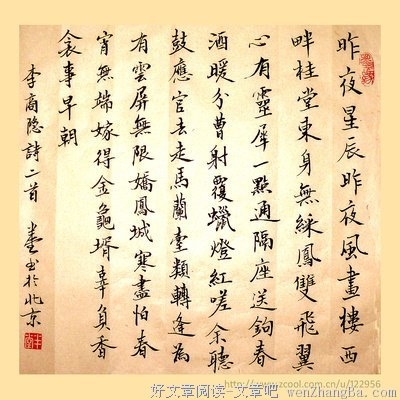 昨夜星辰昨夜風畫樓西
畔桂堂東身無綵鳳雙飛翼
心有靈犀一點通隔座送鉤春
酒暖分曹射覆蠟燈紅嗟余聽
鼓應官去走馬蘭臺類轉逢為
有雲屏無限嬌鳳城寒盡怕春
宵無端嫁得金龜婿辜負香
衾事早朝
李商隐詩二首 书於北京
zcool.com.cn/u/122956
好文章阅读-文章吧 wenzhangba.com